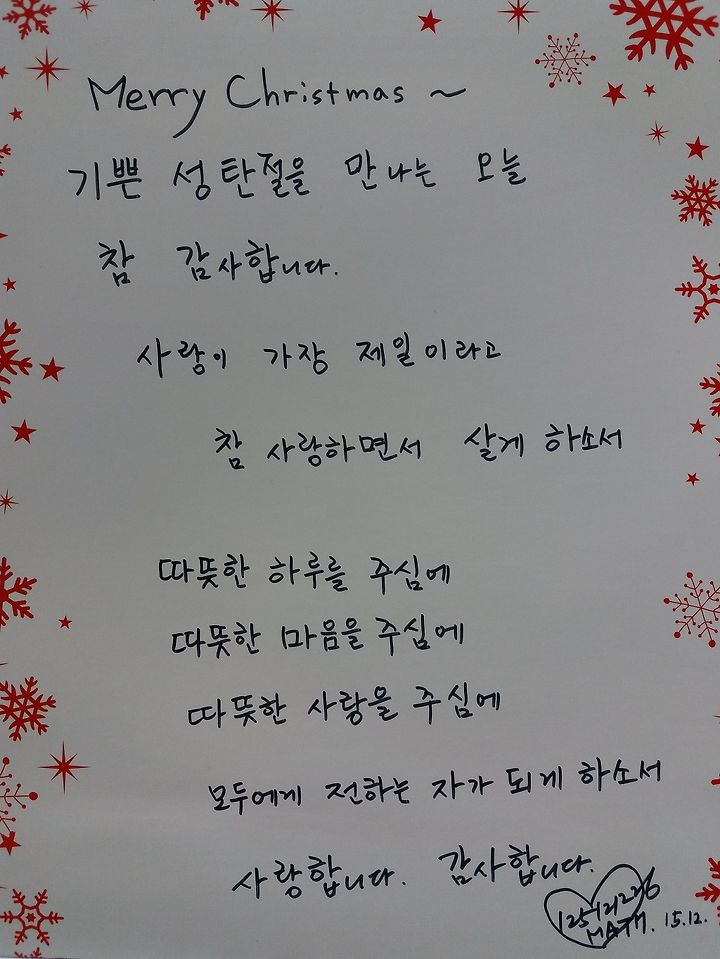 Merry Christmas ~
기쁜 성탄절을 만나는 오늘
참 감사합니다.
사랑이 가장 제일이라고
참 사랑하면서 살게 하소서
따뜻한 하루를 주심에
따뜻한 마음을 주심에
따뜻한 사랑을 주심에
모두에게 전하는 자가 되게 하소서
사랑합니다. 감사합니다.
15.12.